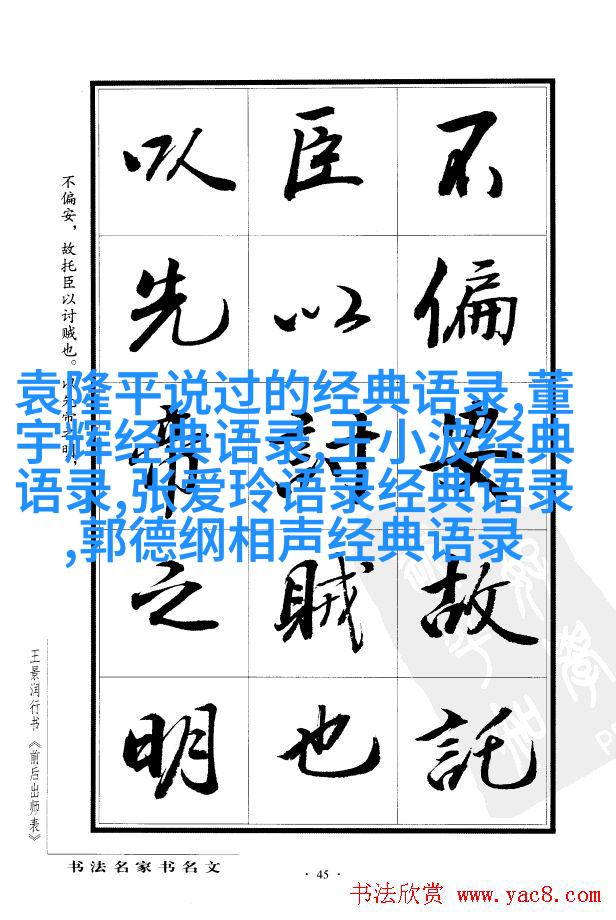 不偏安故託
臣以討賊也
以先帝之明
不偏安，故托臣以讨贼也。以先帝之明，
袁隆平说过的经典语录,董
宇辉经典语录,王小波经典
语录,张爱玲语录经典语录
,郭德纲相声经典语录
王景润行书《前后出师表》
书法名家书名文
·45·
书法欣赏 www.yac8.com